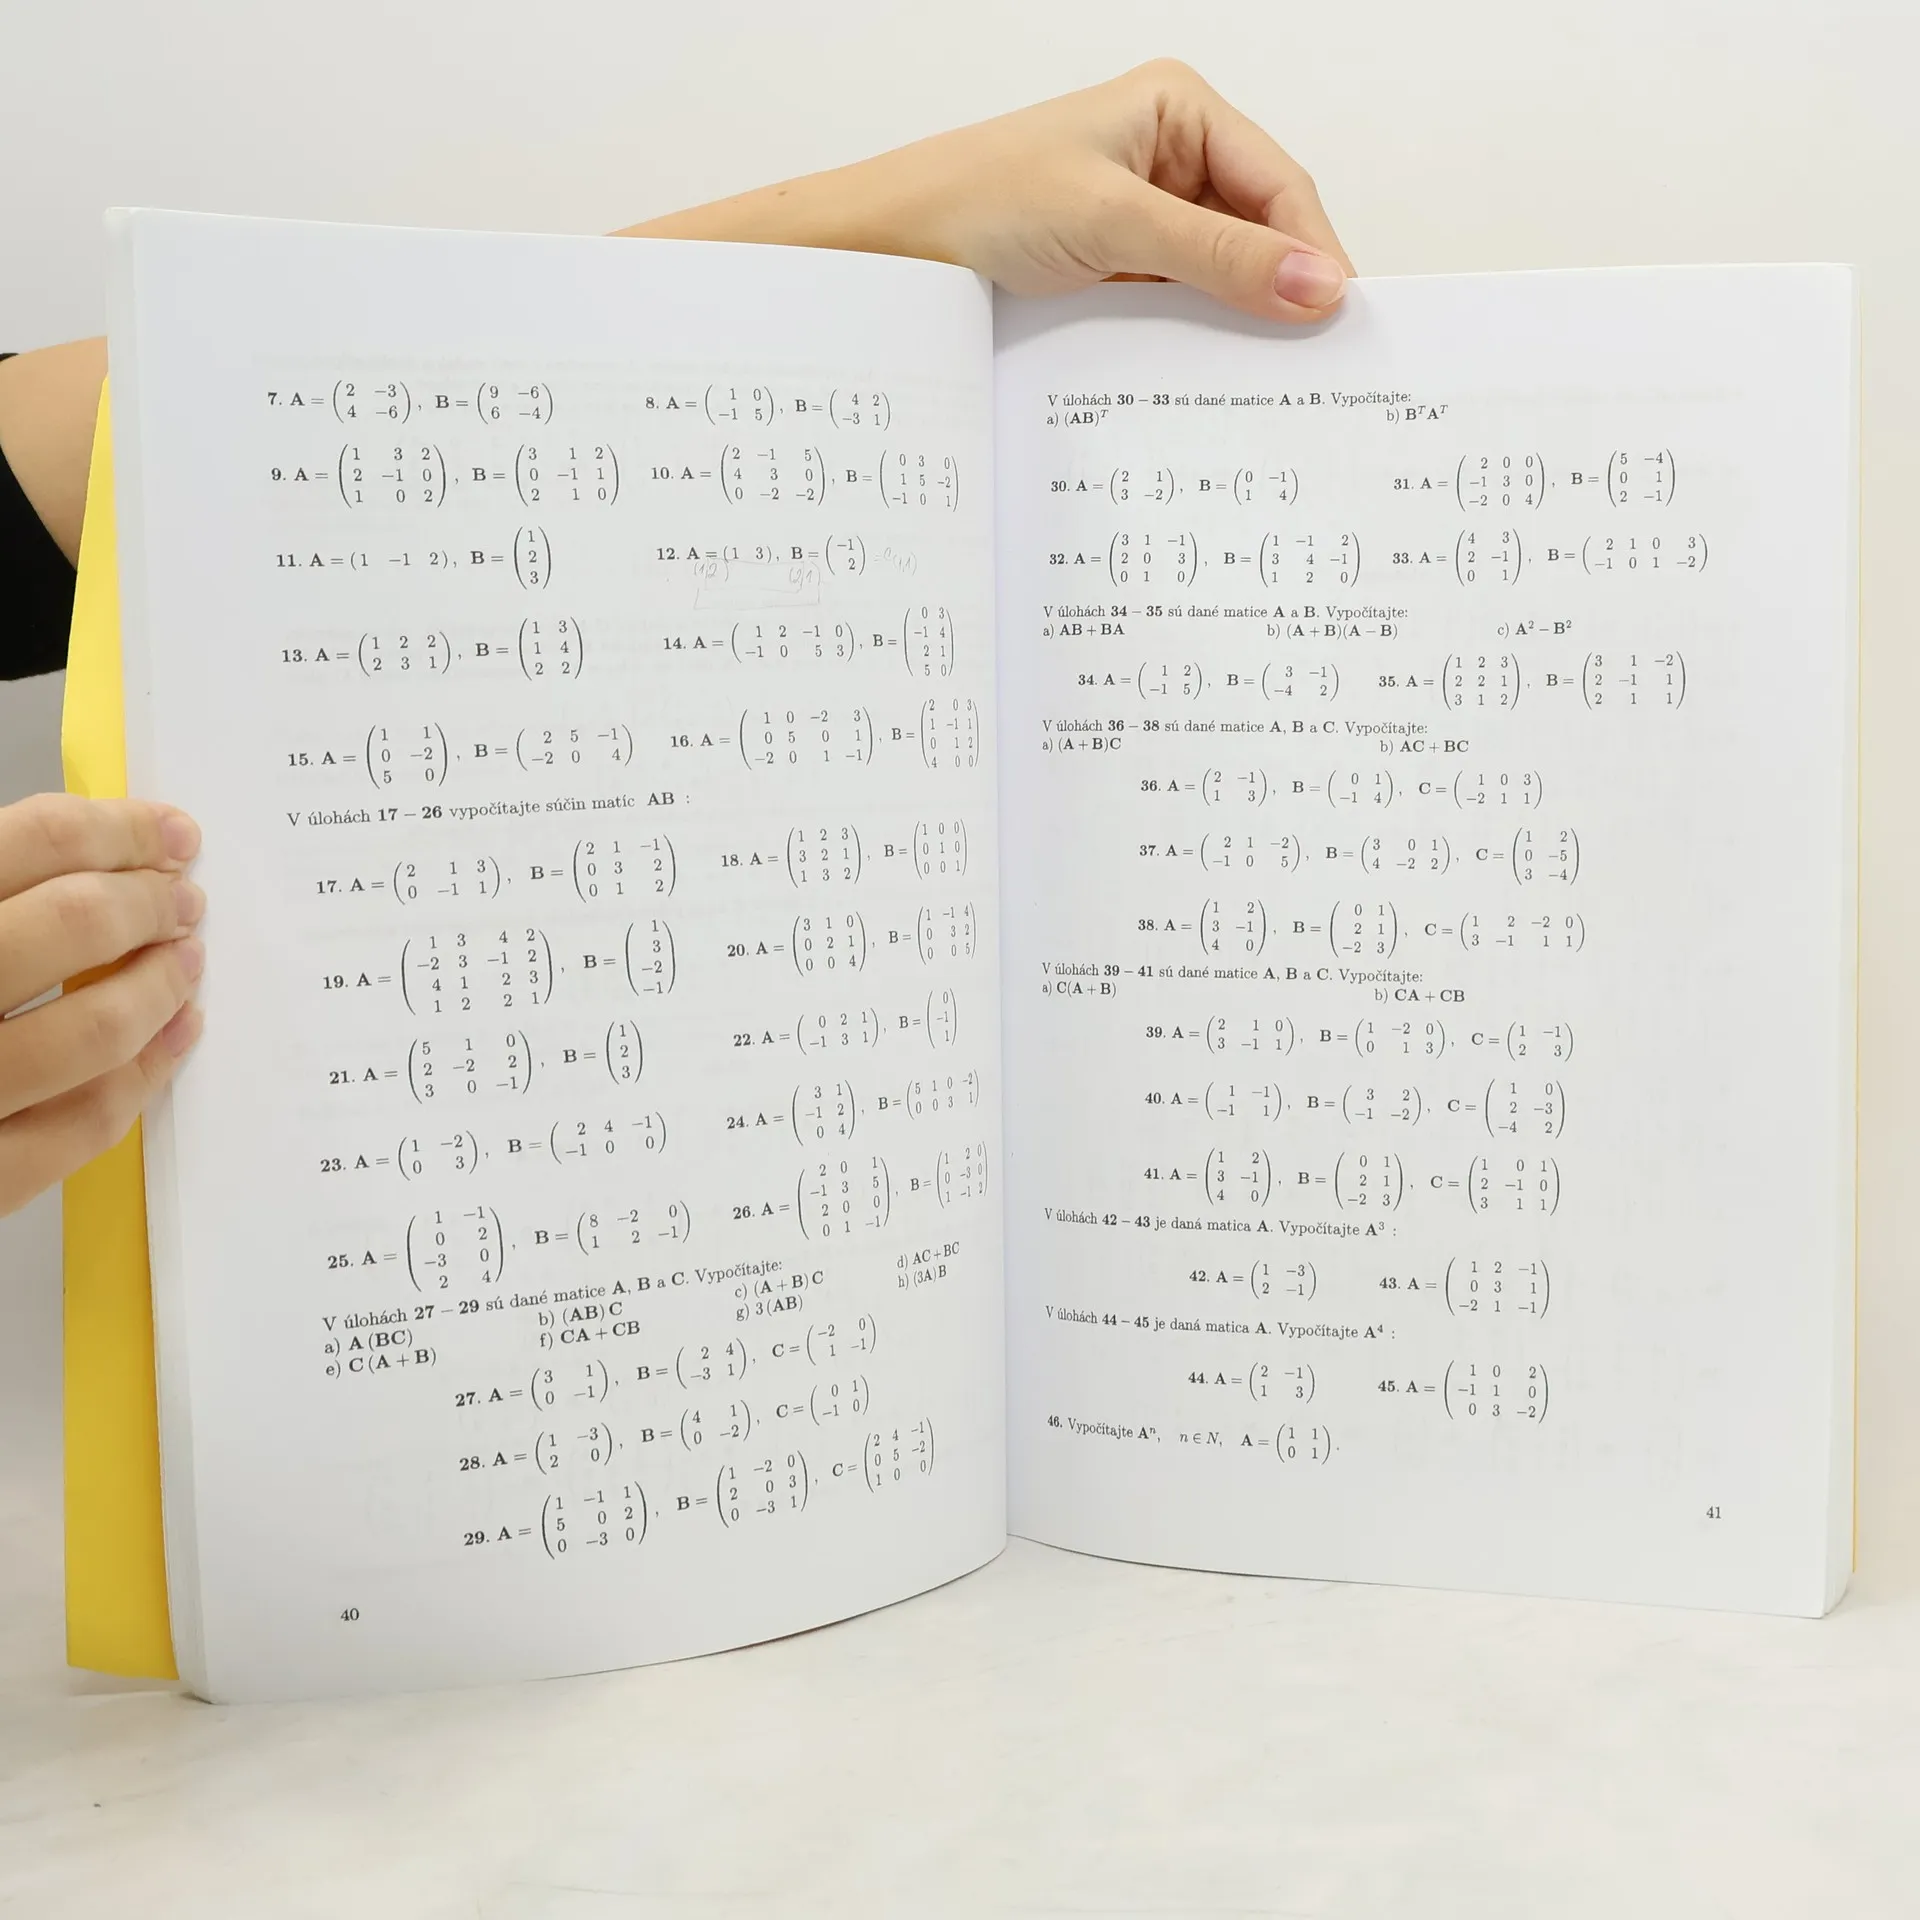 7. A = (2 −3
4 −6), B = (9 −6
6 −4)
8. A = (1 0
−1 5), B = (4 2
−3 1)
9. A = (1 3 2
2 −1 0
1 0 2), B = (3 1 2
0 −1 1
2 1 0)
10. A = (2 −1 5
4 3 0
0 −2 −2), B = (0 3 0
1 5 −2
−1 0 1)
11. A = (1 −1 2), B = (1
2
3)
12. A = (1 3), B = (−1
2)
13. A = (1 2 2
2 3 1), B = (1 3
1 4
2 2)
14. A = (1 2 −1 0
−1 0 5 3), B = (0 3
−1 4
2 1
5 0)
15. A = (1 1
0 −2
5 0), B = (2 5 −1
−2 0 4)
16. A = (1 0 −2 3
0 5 0 1
−2 0 1 −1), B = (2 0 3
1 −1 1
0 1 2
4 0 0)
V úlohách 17 – 26 vypočítajte súčin matíc AB :
17. A = (2 1 3
0 −1 1), B = (2 1 −1
0 3 2
0 1 2)
18. A = (1 2 3
3 2 1
1 3 2), B = (1 0 0
0 1 0
0 0 1)
19. A = (1 3 4 2
−2 3 −1 2
4 1 2 3
1 2 2 1), B = (1
3
−2
−1)
20. A = (3 1 0
0 2 1
0 0 4), B = (1 −1 4
0 3 2
0 0 5)
21. A = (5 1 0
2 −2 2
3 0 −1), B = (1
2
3)
22. A = (0 2 1
−1 3 1), B = (0
−1
1)
23. A = (1 −2
0 3), B = (2 4 −1
−1 0 0)
24. A = (3 1
−1 2
0 4), B = (5 1 0 −2
0 0 3 1)
25. A = (1 −1
0 2
−3 0
2 4), B = (8 −2 0
1 2 −1)
26. A = (2 0 1
−1 3 5
2 0 0
0 1 −1), B = (1 2 0
0 −3 0
1 −1 2)
V úlohách 27 – 29 sú dané matice A, B a C. Vypočítajte:
a) A (BC) b) (AB) C c) (A + B) C d) AC + BC
e) C (A + B) f) CA + CB g) 3 (AB) h) (3A) B
27. A = (3 1
0 −1), B = (2 4
−3 1), C = (−2 0
1 −1)
28. A = (1 −3
2 0), B = (4 1
0 −2), C = (0 1
−1 0)
29. A = (1 −1 1
5 0 2
0 −3 0), B = (1 −2 0
2 0 3
0 −3 1), C = (2 4 −1
0 5 −2
1 0 0)
40
V úlohách 30 – 33 sú dané matice A a B. Vypočítajte:
a) (AB)ᵀ b) BᵀAᵀ
30. A = (2 1
3 −2), B = (0 −1
1 4)
31. A = (2 0 0
−1 3 0
−2 0 4), B = (5 −4
0 1
2 −1)
32. A = (3 1 −1
2 0 3
0 1 0), B = (1 −1 2
3 4 −1
1 2 0)
33. A = (4 3
2 −1
0 1), B = (2 1 0 3
−1 0 1 −2)
V úlohách 34 – 35 sú dané matice A a B. Vypočítajte:
a) AB + BA b) (A + B)(A − B) c) A² − B²
34. A = (1 2
−1 5), B = (3 −1
−4 2)
35. A = (1 2 3
2 2 1
3 1 2), B = (3 1 −2
2 −1 1
2 1 1)
V úlohách 36 – 38 sú dané matice A, B a C. Vypočítajte:
a) (A + B)C b) AC + BC
36. A = (2 −1
1 3), B = (0 1
−1 4), C = (1 0 3
−2 1 1)
37. A = (2 1 −2
−1 0 5), B = (3 0 1
4 −2 2), C = (1 2
0 −5
3 −4)
38. A = (1 2
3 −1
4 0), B = (0 1
2 1
−2 3), C = (1 2 −2 0
3 −1 1 1)
V úlohách 39 – 41 sú dané matice A, B a C. Vypočítajte:
a) C(A + B) b) CA + CB
39. A = (2 1 0
3 −1 1), B = (1 −2 0
0 1 3), C = (1 −1
2 3)
40. A = (1 −1
−1 1), B = (3 2
−1 −2), C = (1 0
2 −3
−4 2)
41. A = (1 2
3 −1
4 0), B = (0 1
2 1
−2 3), C = (1 0 1
2 −1 0
3 1 1)
V úlohách 42 – 43 je daná matica A. Vypočítajte A³ :
42. A = (1 −3
2 −1)
43. A = (1 2 −1
0 3 1
−2 1 −1)
V úlohách 44 – 45 je daná matica A. Vypočítajte A⁴ :
44. A = (2 −1
1 3)
45. A = (1 0 2
−1 1 0
0 3 −2)
46. Vypočítajte Aⁿ, n ∈ N, A = (1 1
0 1).
41